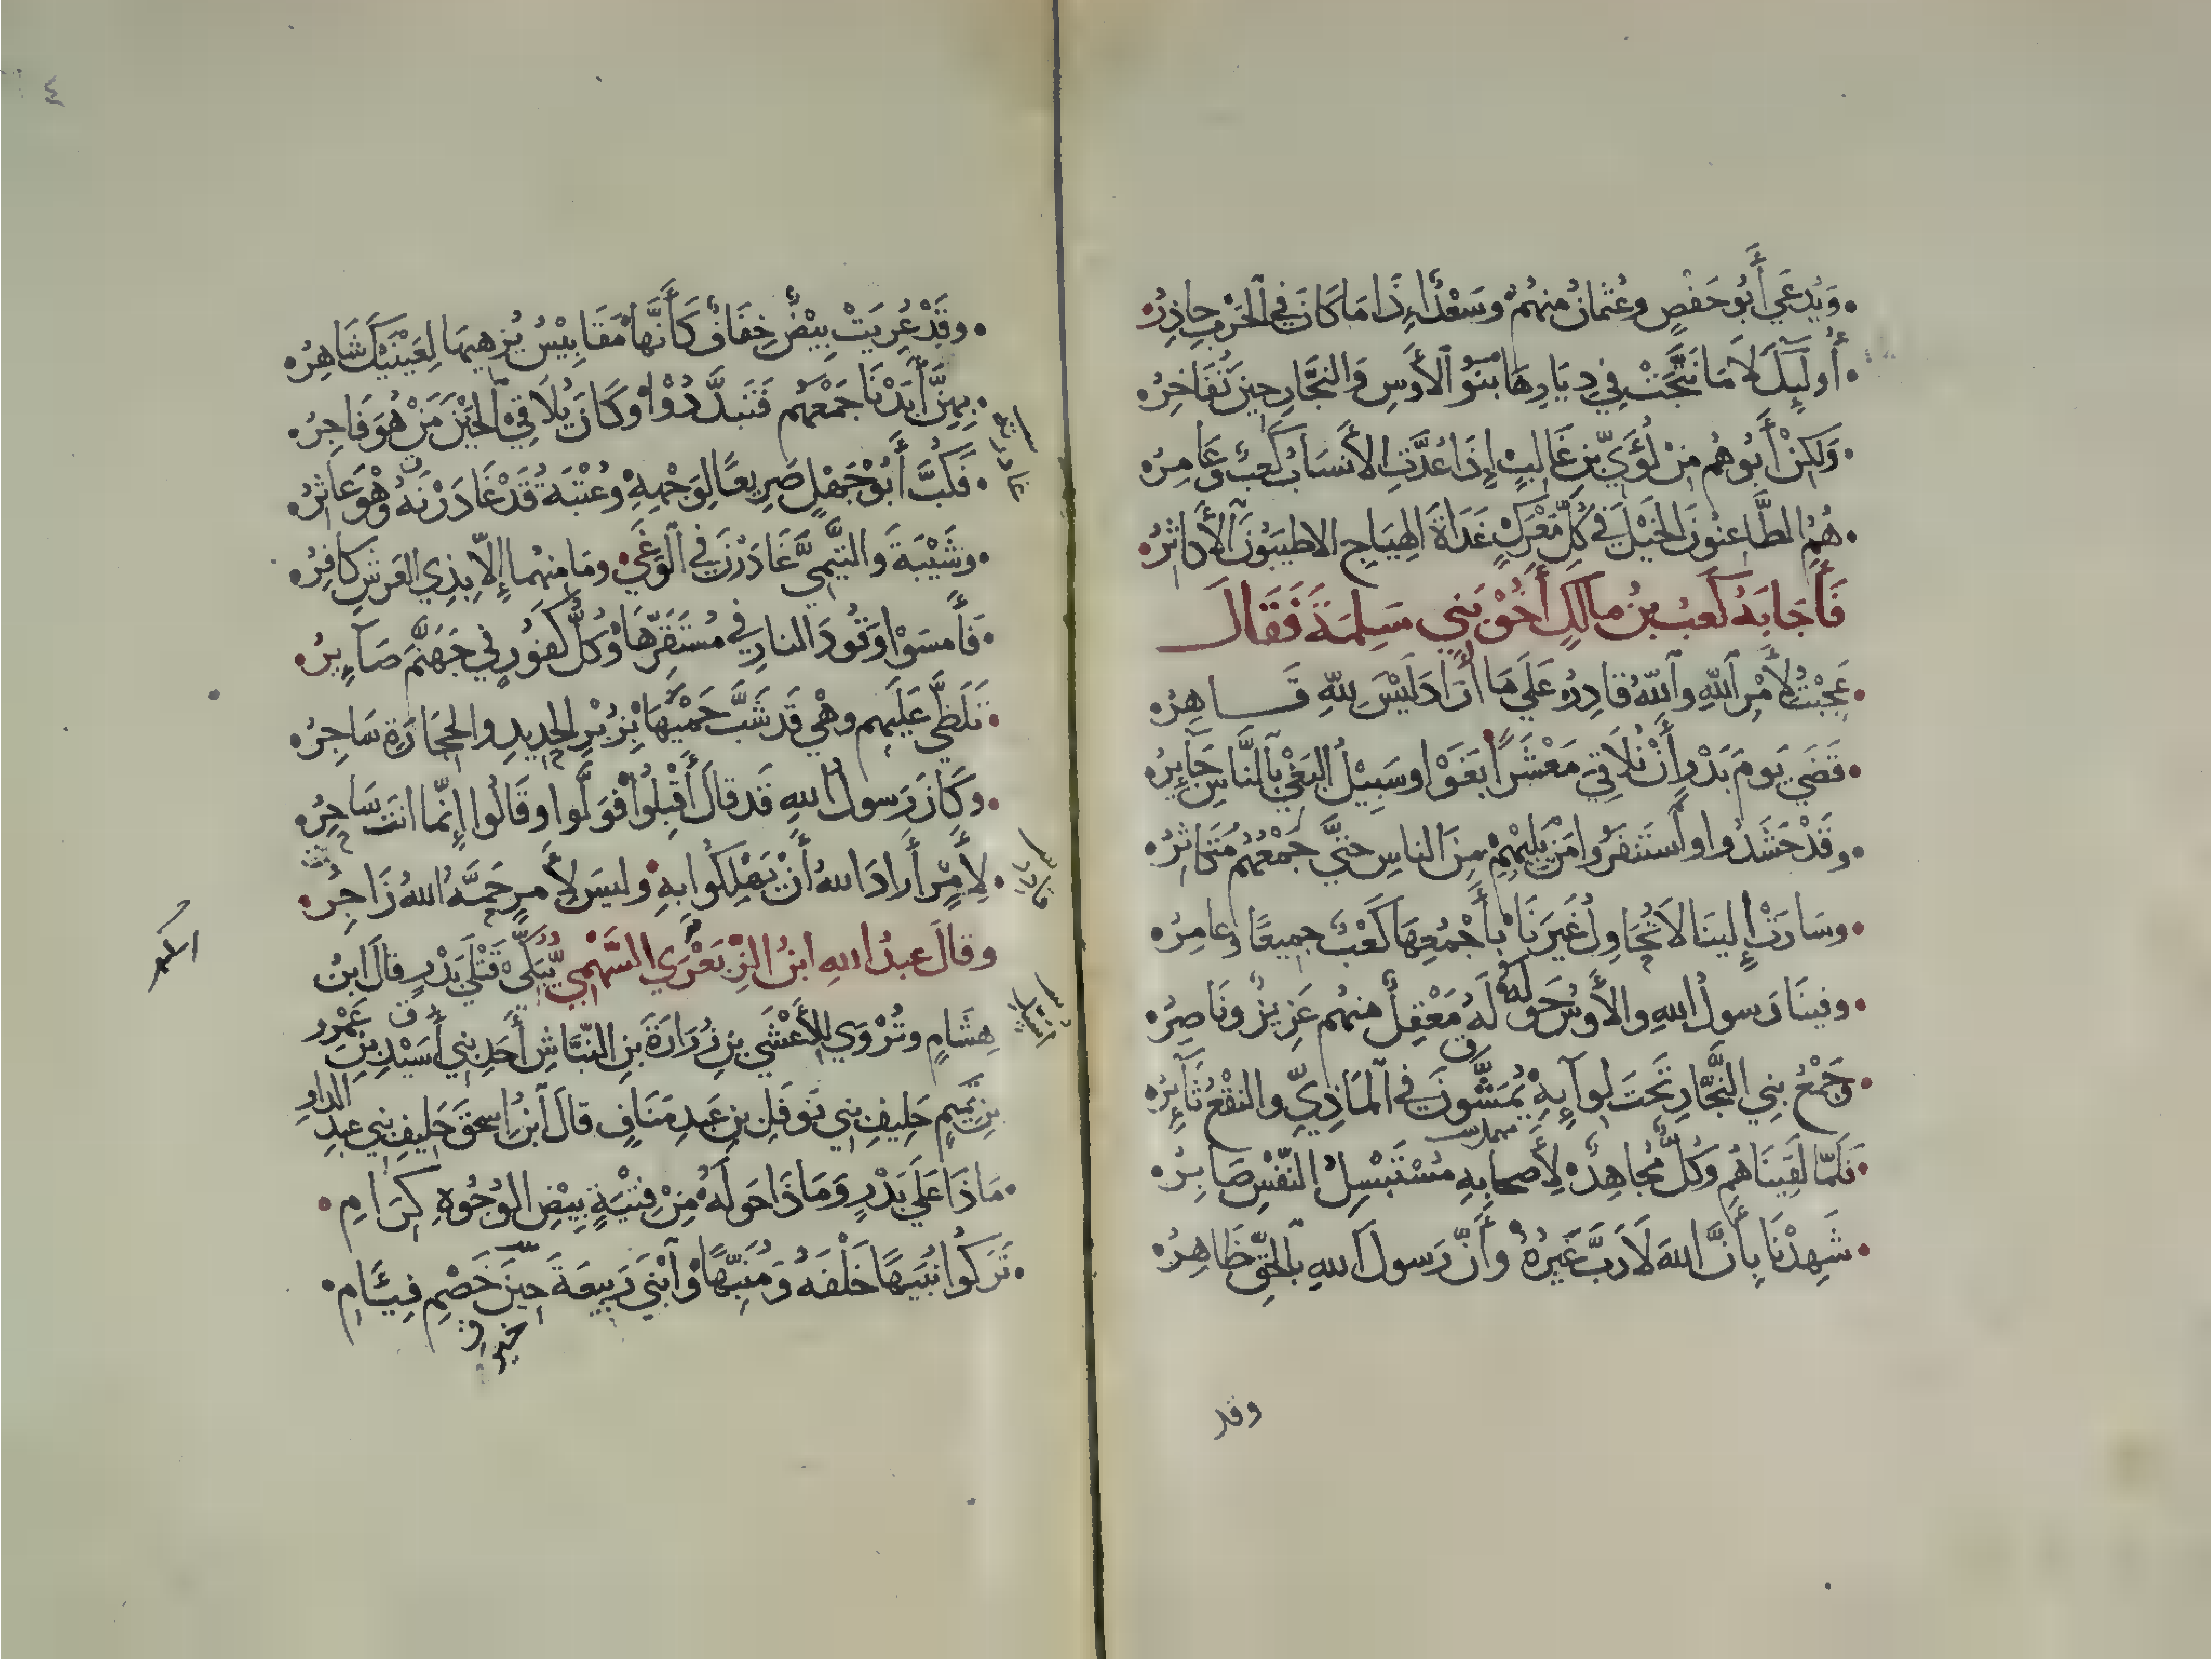 وَيُدعَي أَبُو حَفْصٍ وعُثمَانُ مِنهُمُ وسَعْدٌ إِذَا مَا كَانَ فِي الحَرْبِ حاذِرُ
أُولَيِكَ لَا مَا نَتَّجَتْ فِي دِيَارِهَا بَنُو الأَوسِ وَالنجَّارِ حينَ تُفَاخِرُ
وَلَكِنْ أَبُوهُم مِنْ لُؤَيِّ بنِ غَالِبٍ إِذَا عُدَّتِ الأنسَابُ كَعبٌ وَعَامِرُ
هُمُ الطَّاعِنُونَ الخَيْلَ فِي كُلِّ مَعْرَكٍ غَدَاةَ الهِيَاجِ الاطيَبُونَ الأَكاثِرُ
فَأَجَابَهُ كَعبُ بنُ مالكٍ أَخُوْ بَنِي سَلِمَةَ فَقَالَ
عَجِبْتُ لأَمْرِ اللهِ واللهُ قادِرُ عَلَي مَا أَرَادَ لَيْسَ للهِ قَاهِرُ
قَضَي يَومَ بَدْرٍ أَنْ نُلَاقِيَ مَعْشَرًا بَغَوْا وسَبِيْلُ البَغْيِ بالنَّاسِ جَآيِرُ
وقَدْ حَشَدُوا واستَنفَرُوا مَنْ يَلِيْهِمْ مِنَ الناسِ حتيَّ جَمْعُهُم مُتَكاثِرُ
وسَارَتْ إِلينَا لَا تُحَاوِلُ غَيرَنَا بأَجْمُعِهَا كَعْبٌ جميعًا وعامِرُ
وفينَا رَسولُ اللهِ والأَوسُ حَولَهُ لَهُ مَعْقِلٌ منهُم عَزِيزٌ ونَاصِرُ
وَجَمْعُ بنِي النَّجَّارِ تَحتَ لوآيِهِ يُمَشَّونَ فِي المَاذِيِّ والنقْعُ ثَآيِرُ
فَلَمّا لَقِينَاهُم وَكُلٌّ مُجَاهِدٌ لِأَصحابِهِ مُسْتَبْسِلُ النّفْسِ صَابِرُ
شَهِدْنَا بِأَنَّ اللهَ لَا رَبَّ غَيرُهُ وأَنَّ رَسولَ اللهِ بالحَقِّ ظَاهِرُ
وقد
٤
وقَدْ عُرِيَتْ بِيْضٌ خِفَافٌ كَأَنَّهَا مَقَابِيْسُ يُزهِيهَا لِعَيْنَيْكَ شَاهِرُ
بِهِنَّ أَبَدْنَا جَمْعَهُم فَتَبدَّدُوْا وَكَانَ يُلَاقِيْ الحَيْنَ مَنْ هُوَ فَاجِرُ
فَكُبَّ أَبُوْ جَهْلٍ صَرِيعًا لِوَجْهِهِ وعُتْبَةُ قَدْ غَادَرْنَهُ وهْوَ عَاثِرُ
وشَيْبَةَ والتَّيْمِيَّ غَادَرْنَ فِي الوَغَي ومَا مِنهُما إِلّا بِذِي العَرشِ كافِرُ
فَأَمسَوْا وَقُودَ النارِ فِي مُستَقَرِّهَا وَكُلُّ كَفُورٍ فِي جَهَنَّمَ صَآيِرُ
تَلَظَّي عَلَيهم وهْيَ قَد شَبَّ حَمْيُهَا بِزُبْرِ الحدِيدِ والحِجَارَةِ سَاجِرُ
وَكَانَ رَسولُ اللهِ قَد قالَ أَقْبِلُوْا فَوَلَّوا وقَالُوا إِنّما انتَ سَاحِرُ
لِأَمْرٍ أَرادَ اللهُ أَنْ يَهْلِكُوا بهِ وليسَ لِأَمرٍ حَمَّهُ اللهُ زَاجِرُ
وقالَ عبدُ اللهِ ابنُ الزِّبَعْرَي السَّهْمِيُّ يُبَكِّيْ قَتْلَي بَدْرٍ قالَ ابنُ
هِشَامٍ وتُرْوَي لِلأَعْشَي بنِ زُرَارَةَ بنِ النبَّاشِ أَحَدِ بنِي أُسَيْدِ بنِ عَمْرِو
بنِ تَمِيمٍ حَلِيفِ بنِي نَوفَلِ بنِ عَبدِ مَنَافٍ قالَ ابنُ إِسحقَ حَلِيفِ بنِي عبدِ الدارِ
مَاذَا عَلَي بَدْرٍ وَمَاذَا حَولَهُ مِنْ فِتْيَةٍ بِيْضِ الوُجُوْهِ كِرَامِ
تَرَكُوا نُبَيهًا خَلْفَهُ وَمُنَبِّهًا وابْنَي رَبِيعَةَ حِينَ خَصْمِ فِئَامِ